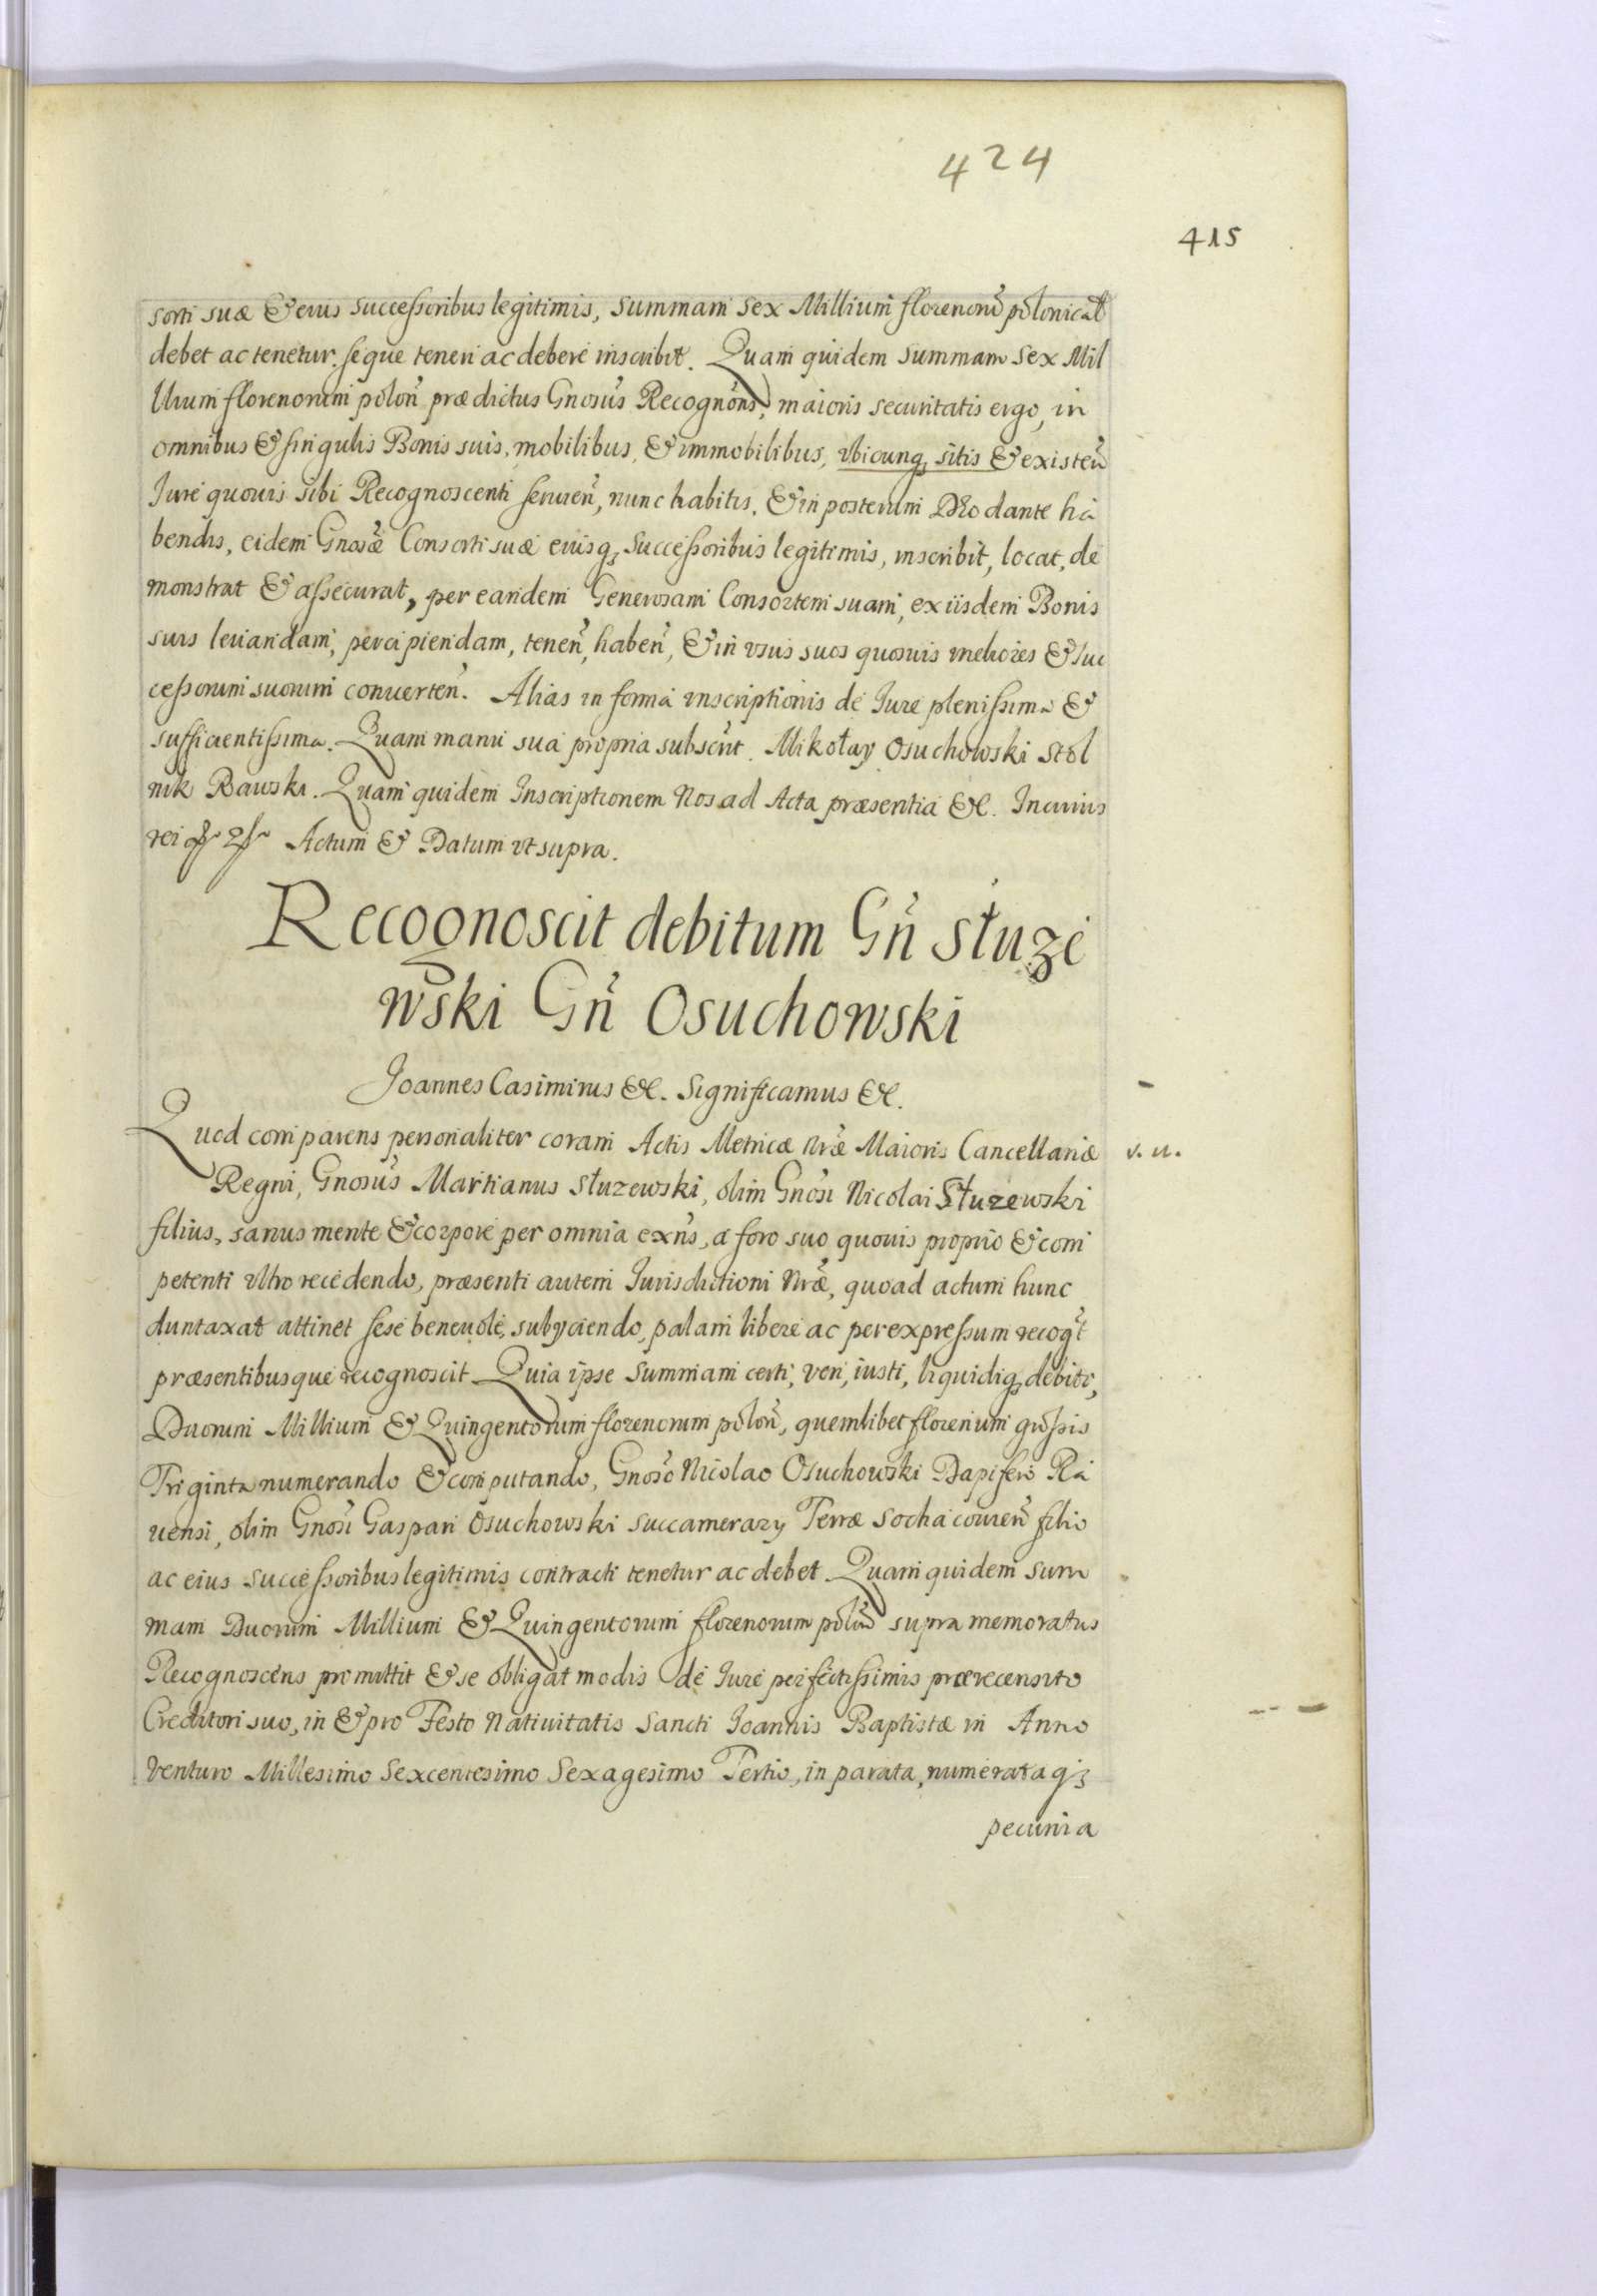 424
415
sorti suæ & eius successoribus legitimis, summam sex Millium florenorũ polonical
debet ac tenetur, seque teneri ac debere inscribit. Quam quidem summam sex Mil
lium florenorum poloñ prædictus Gnosus Recognõns, maioris securitatis ergo, in
omnibus & singulis Bonis suis, mobilibus, & immobilibus, vbicunq3 sitis & existeñ
Jure quouis sibi Recognoscenti seruieñ, nunc habitis, & in posterum Deo dante ha
bendis, eidem Gnosæ Consorti suæ eiusq3 successoribus legitimis, inscribit, locat, de
monstrat & assecurat, per eandem Generosam Consortem suam, ex iisdem Bonis
suis leuandam, percipiendam, teneñ, habeñ, & in vsus suos quosuis meliores & suc
cessorum suorum conuerteñ. Alias in forma inscriptionis de Jure plenissima &
sufficientissima. Quam manu sua propria subscrit. Mikołay Osuchowski Stol
nik Rawski. Quam quidem Inscriptionem Nos ad Acta præsentia &c. In cuius
rei Actum & Datum vt supra.
Recognoscit debitum Gñ Słuze
wski Gñ Osuchowski
Joannes Casimirus &c. Significamus &c.
Quod comparens personaliter coram Actis Metricæ Nræ Maioris Cancellariæ v. u.
Regni, Gnosus Martianus Słuzewski, olim Gnosi Nicolai Słuzewski
filius, sanus mente & corpore per omnia exñs, a foro suo quouis proprio & com
petenti vltro recedendo, præsenti autem Jurisdictioni Nræ, quoad actum hunc
duntaxat attinet sese beneuole, subijciendo, palam libere ac per expressum recogt
præsentibusque recognoscit Quia ipse summam certi, veri, iusti, liquidiq3 debiti,
Duorum Millium & Quingentorum florenorum poloñ, quemlibet florenum grossis
Triginta numerando & computando, Gnoso Nicolao Osuchowski Dapifero Ra
uensi, olim Gnosi Gaspari Osuchowski Succamerarij Terræ Sochacouieñ filio
ac eius successoribus legitimis contracti tenetur ac debet Quam quidem sum
mam Duorum Millium & Quingentorum florenorum poloñ supra memoratus
Recognoscens promittit & se obligat modis de Jure perfectissimis prærecensito
Creditori suo, in & pro Festo Natiuitatis Sancti Joannis Baptistæ in Anno
venturo Millesimo Sexcentesimo Sexagesimo Tertio, in parata, numerataq3
pecunia